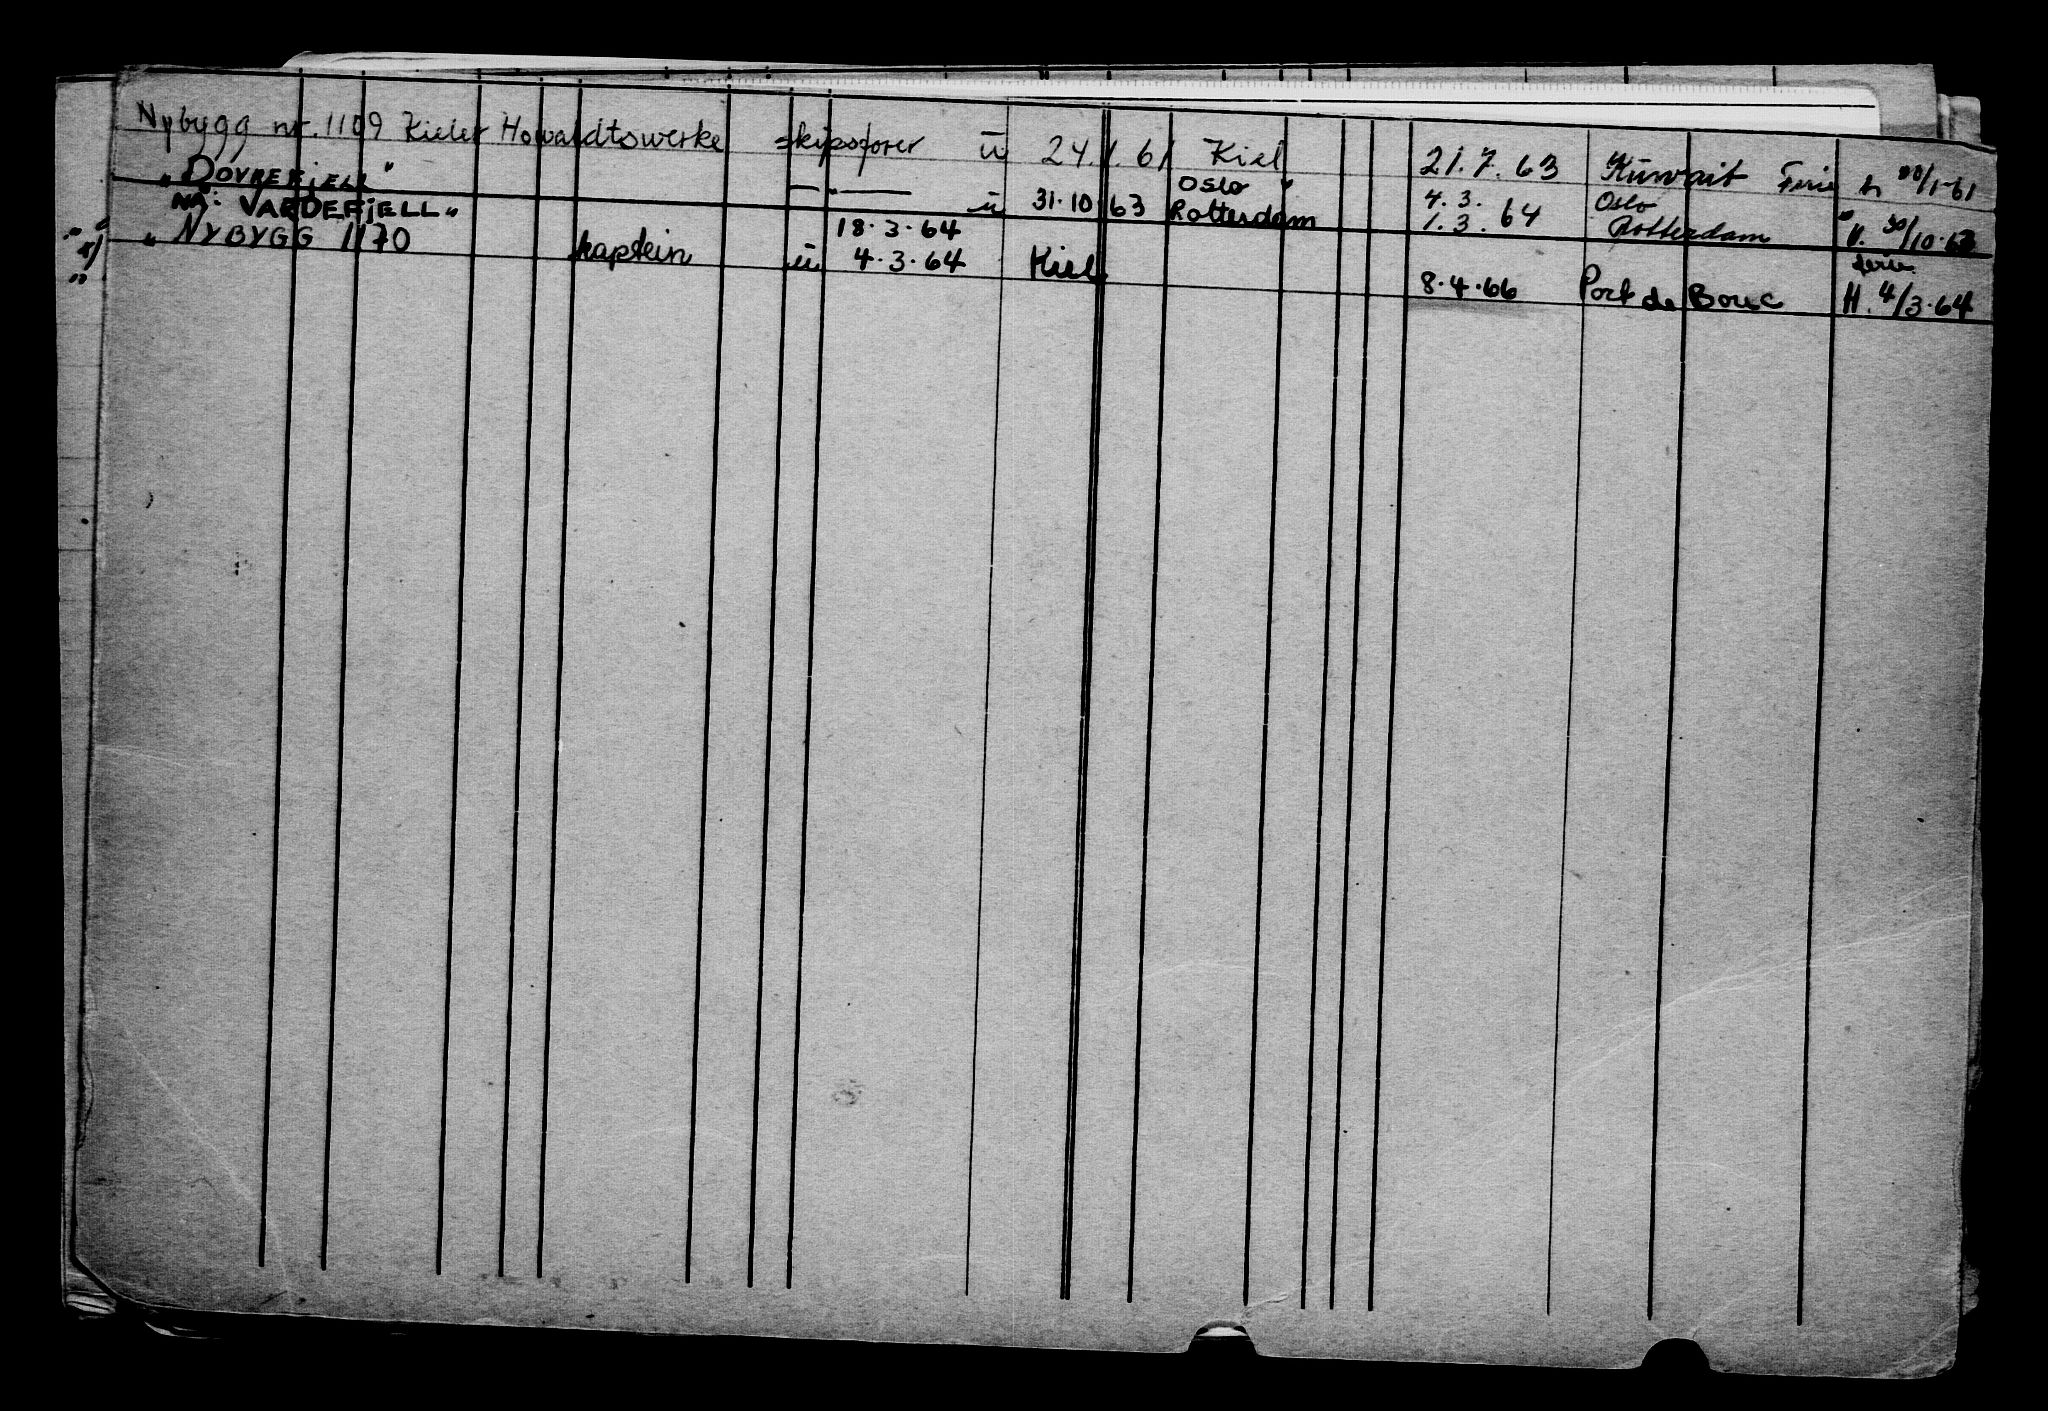 Nybygg nr. 1109 Kieler Howaldtswerke skipsfører ü 24.1.61 Kiel 21.7.63 Kuwait Ferie h 20/1-61
"DOVREFJELL" — " — ü 31.10 63 Oslo Rotterdam 4.3. 1.3. 64 Oslo Rotterdam " H. 30/10.63
nå: VARDEFJELL" 18.3.64 ferie
" NYBYGG 1170 kaptein ü 4.3.64 Kiel 8.4.66 Port de Bouc H. 4/3.64